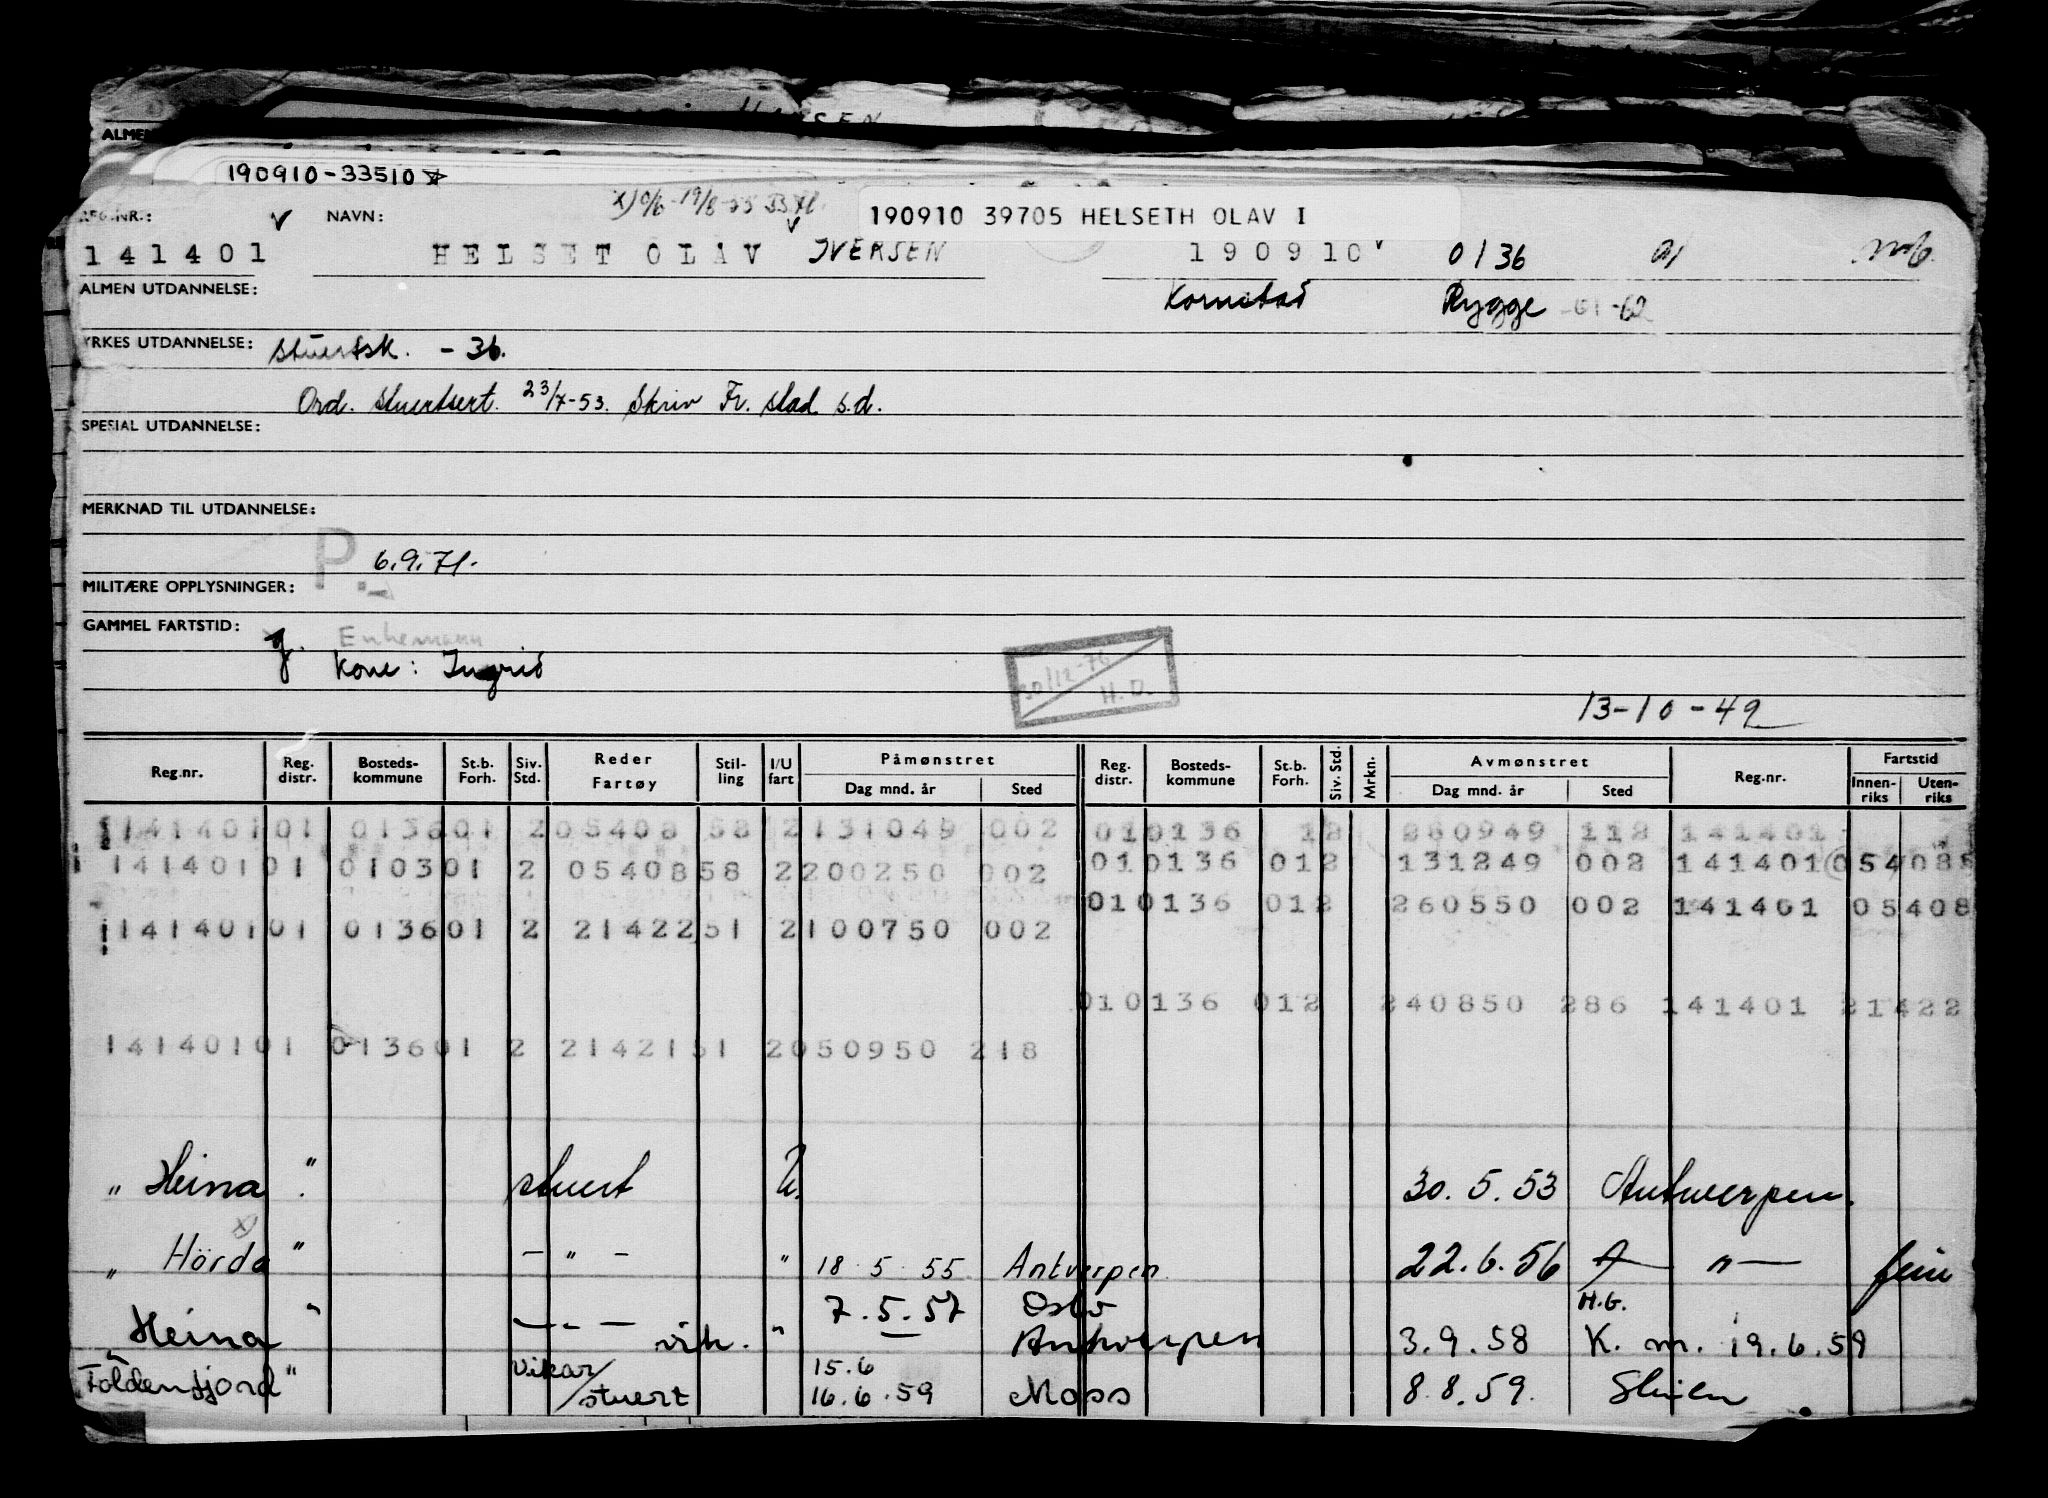 ALMEN
190910-33510
190910 39705 HELSETH OLAV I
REG.NR.: NAVN:
141401 HELSET OLAV IVERSEN 190910 0136
ALMEN UTDANNELSE: Kornstad Rygge -01-62
YRKES UTDANNELSE: stuertsk. - 36.
Ord. stuertsert. 23/7-53. Skriv Fr. stad s.d.
SPESIAL UTDANNELSE:
MERKNAD TIL UTDANNELSE:
P. 6.9.71.
MILITÆRE OPPLYSNINGER:
GAMMEL FARTSTID: g. Enkemann
Kone: Ingrid
30/12-76
H.D.
13-10-49
Reg.nr. Reg. distr. Bostedskommune St.b. Forh. Siv. Std. Reder Fartøy Stilling I/U fart Påmønstret Dag mnd. år Sted Reg. distr. Bostedskommune St.b. Forh. Siv. Std. Mrkn. Avmønstret Dag mnd. år Sted Reg.nr. Fartstid Innenriks Utenriks
141401 01 0136 01 2 05408 58 2 131049 002 01 0136 12 280949 112 141401
141401 01 0103 01 2 05408 58 2 200250 002 01 0136 01 2 131249 002 141401 05408
01 0136 01 2 260550 002 141401 05408
141401 01 0136 01 2 21422 51 2 100750 002
01 0136 01 2 240850 286 141401 21422
141401 01 0136 01 2 21421 51 2 050950 218
" Heina " stuert U. 30.5.53 Antwerpen.
" Hörda x) " - " - " 18.5.55 Antverpen 22.6.56 A — " — ferie
7.5.57 Oslo H.G.
Heina " - " - vik. " — Antwerpen 3.9.58 K. m. 19.6.59
Foldenfjord " Vikar/stuert 15.6 16.6.59 Moss 8.8.59.